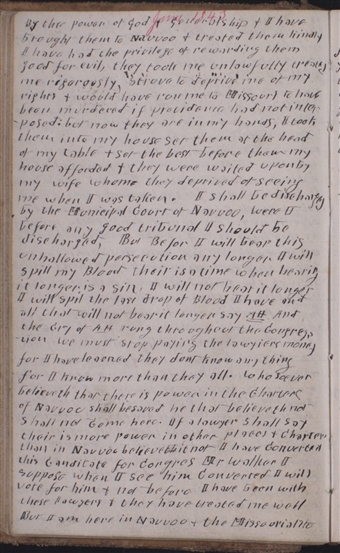 by the power of God & friendship & I have
brought them to Navvoo & treated them kindly
I have had the privilege of rewarding them
good for evil, they took me unlawfully treated
me rigorously, strove to deprive me of my
rights & would have run me to Missouri to have
been murdered if providence had not inter-
posed: but now they are in my hands, I took
them into my house set them at the head
of my table & set the best before them my
house afforded & they were waited upon by
my wife whome they deprived of seeing
me when I was taken. I shall be discharged
by the Municipal Court of Navvoo, were I
before any good tribunal I should be
discharged, But Befor I will bear this
unhallowed persecution any longer I will
spill my Blood their is a time when bearing
it longer is a sin, I will not bear it longer
I will spill the last drop of Blood I have and
all that will not bear it longer say AH. And
the Cry of A.H rung throughout the Congrega-
-tion we must stop paying the lawyiers money
for I have learned they dont know any thing
for I know more than they all. whosoever
believeth that there is power in the Charters
of Navvoo shall be saved he that believeth not
shall not Come here. If a lawyer shall say
their is more power in other places & Charters
than in Navvoo believe it not I have Converted
this Candidate for Congres Mr Walker I
suppose when I see him Converted I will
vote for him & not before I have been with
these Lawyers & they have treated me well
But I am here in Navvoo & the Missourians to